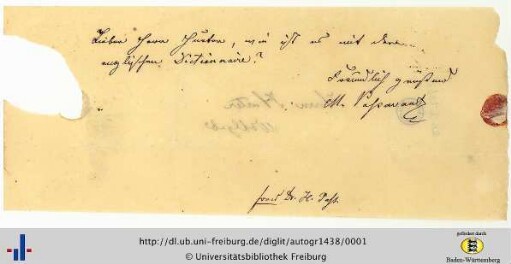 Lieber Herr Hurter, wie ist es mit dem
englischen Dictionnaire?
Freundlich grüßend
M. Passavant
Herrn Hurter
from Dr. H. Pass.
http://dl.ub.uni-freiburg.de/diglit/autogr1438/0001
© Universitätsbibliothek Freiburg
gefördert durch
Baden-Württemberg